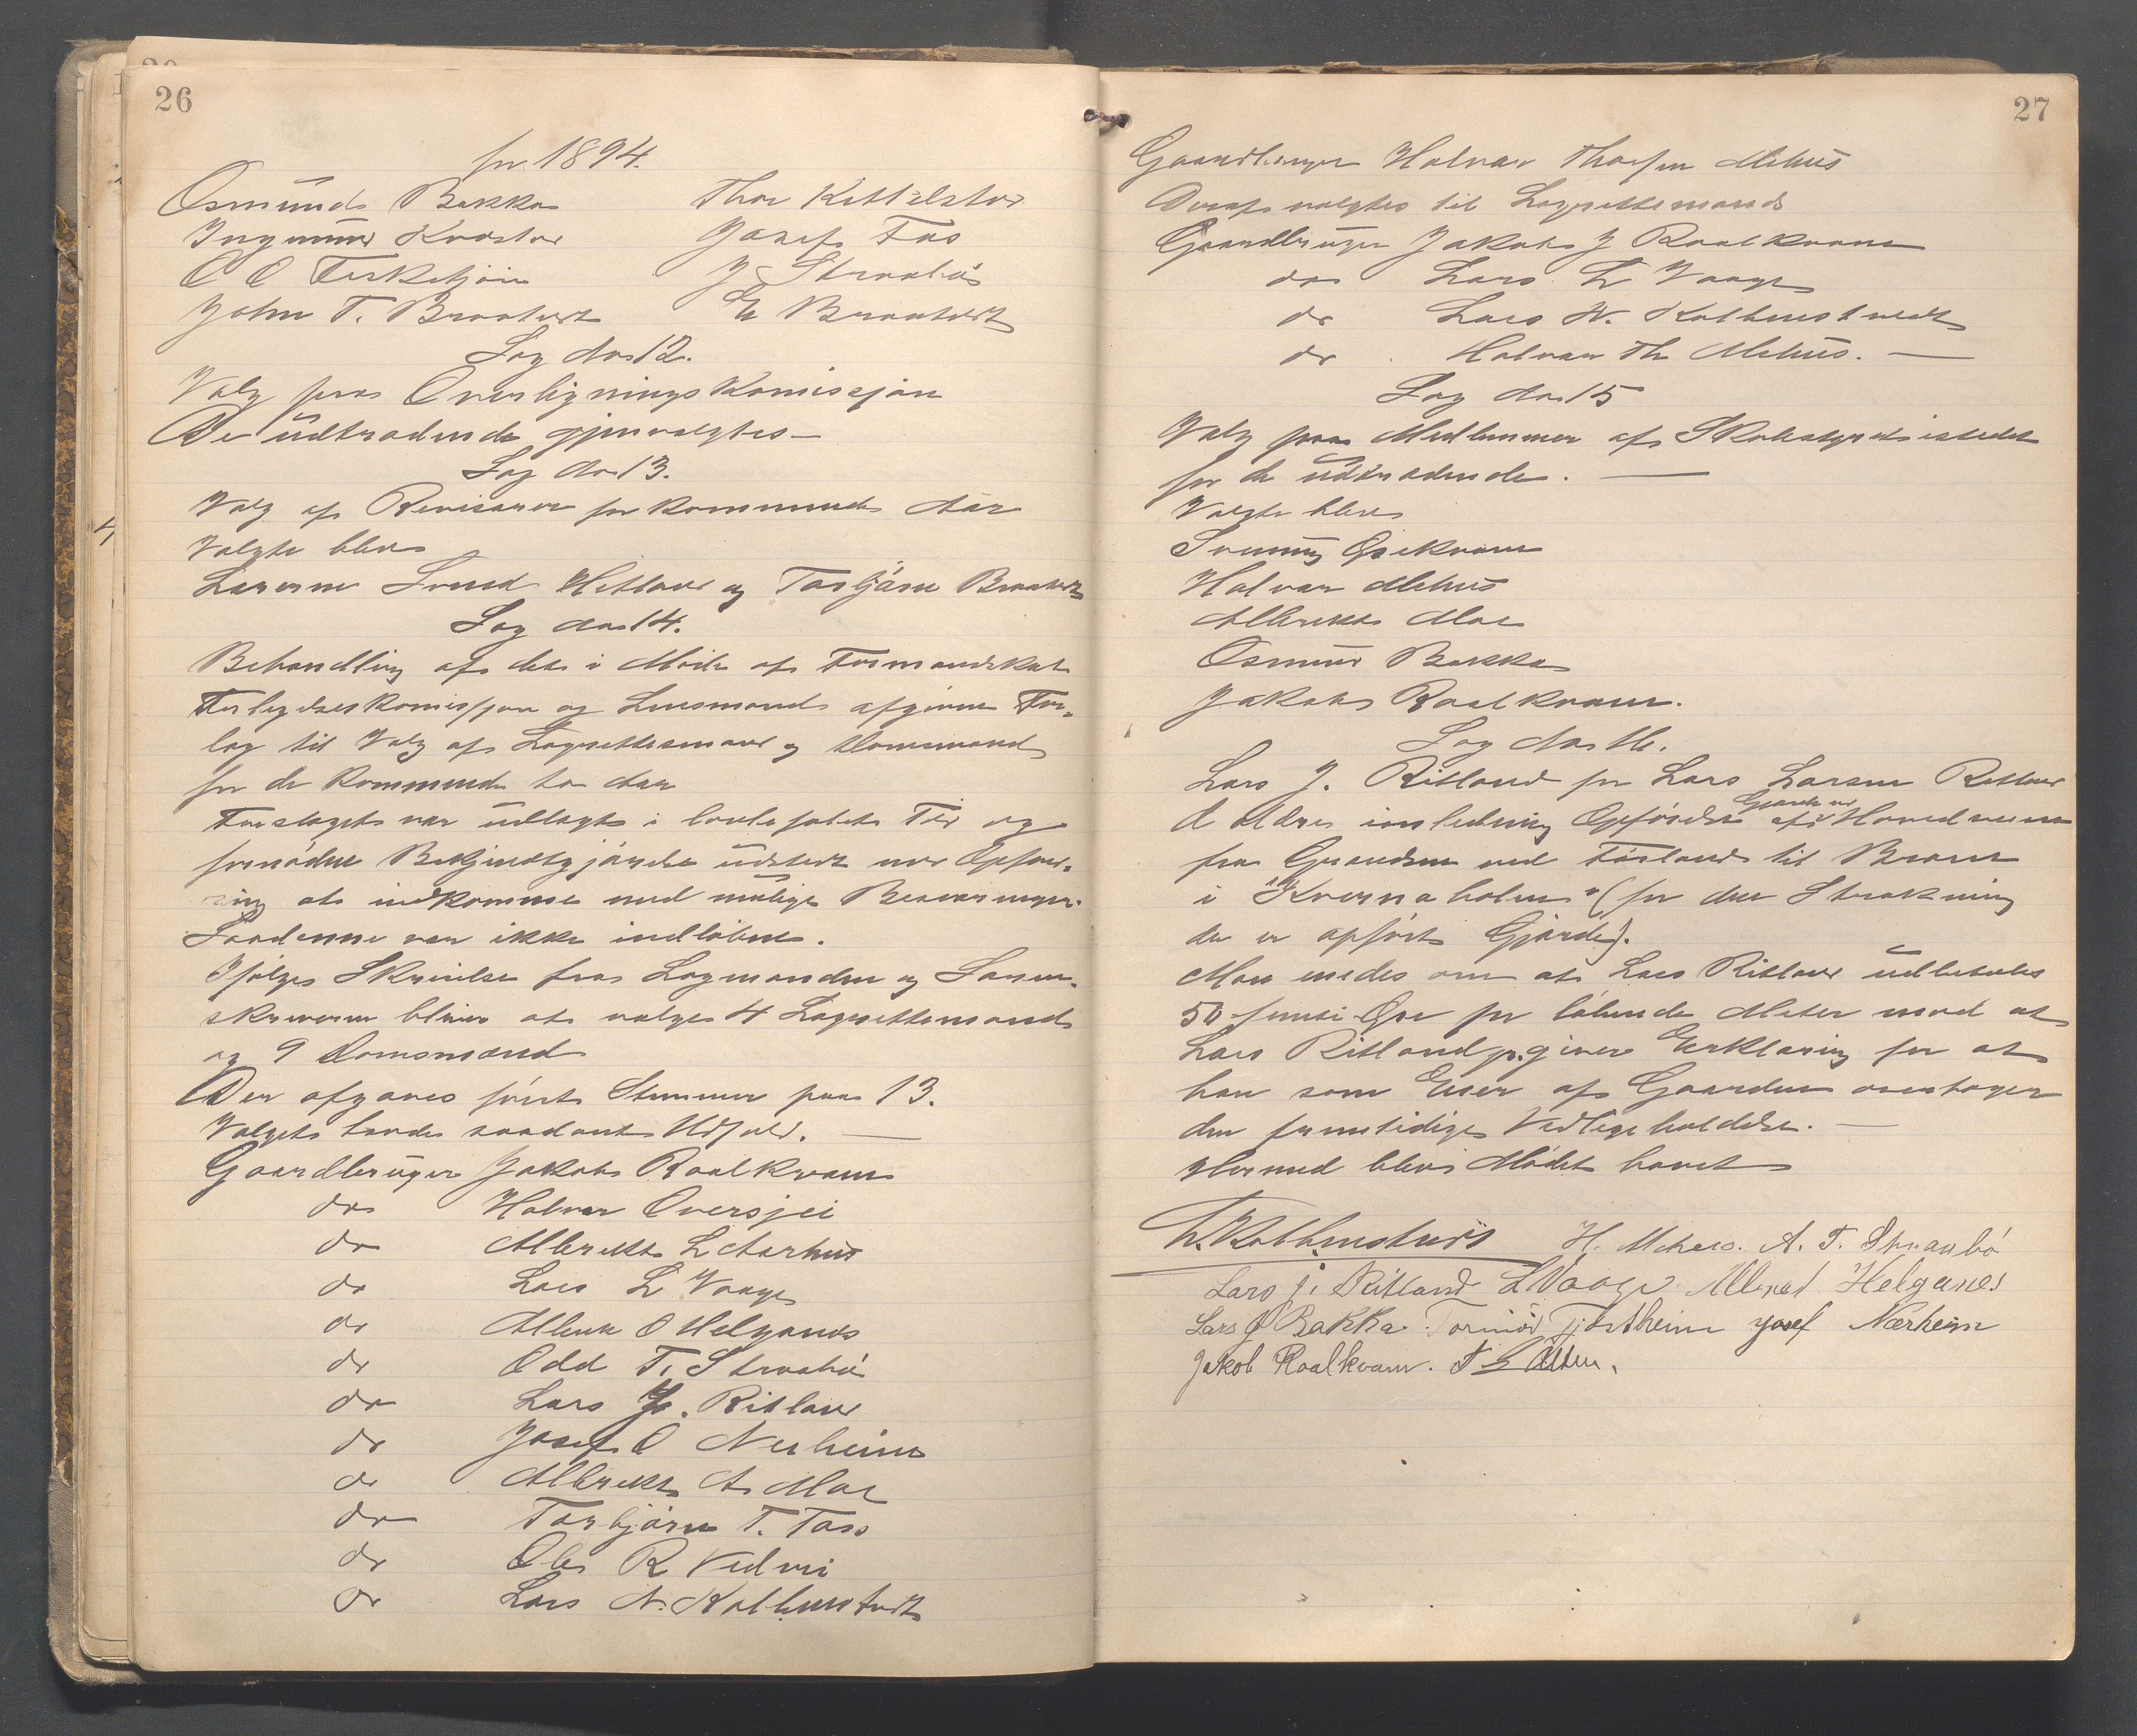 26
for 1894.
Osmund Bakka Thor Kittelstø
Ingmund
O O Josef
John T. Braatveit J Straabø
E Braatveit
Sag No 12.
Valg paa Overligningskomissjon
De udtrædende gjenvalgtes —
Sag No 13.
Valg af Revisorer for kommende Aar
Valgte blev
Lærerne Svend Hetland og Torbjørn Braatveit
Sag No 14.
Behandling af det i Møde af Formandskab
Forligelseskomissjon og Lensmand afgivne For-
lag til Valg af Lagrettesmænd og Domsmænd
for de kommende to Aar
Forslaget var udlagt i lovbefalet Tid og
fornøden Bekjendtgjørelse udstedt med Opford-
ring at indkomme med mulige Bemærkninger.
Saadanne var ikke indløbne.
Ifølge Skrivelse fra Lagmanden og Soren-
skriveren bliver at vælge 4 Lagrettemænd
og 9 Domsmænd
Der afgaves først Stemmer paa 13.
Valget havde saadant Udfald. —
Gaardbruger Jakob Raalkvam
do Halvar Oversjei
do Albrekt L Aarhus
do Lars L Vaage
do Albrek O Helganes
do Odd T. Straabø
do Lars J. Ritland
do Josef O Nerheim
do Albrekt A Moe
do Torbjørn T. Tøs
do Ole R Vedvei
do Lars N. Kolbenstvedt
27
Gaardbruger Halvar Thorsen Mehus
Deraf valgtes til Lagrettemænd
Gaardbruger Jakob J Raalkvam
do Lars L Vaage
do Lars N. Kolbenstvedt
do Halvar Th Mehus. —
Sag No 15
Valg paa Medlemmer af Skolestyret istedet
for de udtrædende. —
Valgte blev
Svenung Opekvam
Halvar Mehus
Albrekt Moe
Osmund Bakka
Jakob Raalkvam.
Sag No 16.
Lars J. Ritland for Lars Larsen Ritland
d Ældres Opførelse af Gjærde ved Hovedveien
fra Grændsen ved Førland til Broen
i "Kvernaholm" (for den Strækning
der er opført Gjærde).
Man enedes om at Lars Ritland udbetales
50 femti Øre pr løbende Meter mod at
Lars Ritland p. giver Erklæring for at
han som Eier af Gaarden overtager
den fremtidige Vedligeholdelse. —
Hermed blev Mødet hævet
L. Kolbenstvedt H. Mehus. A. T. Straabø
Lars J. Ritland L Vaage Albret Helganes
Lars J Bakka. Tormod Tjøstheim Josef Nærheim
Jakob Raalkvam.